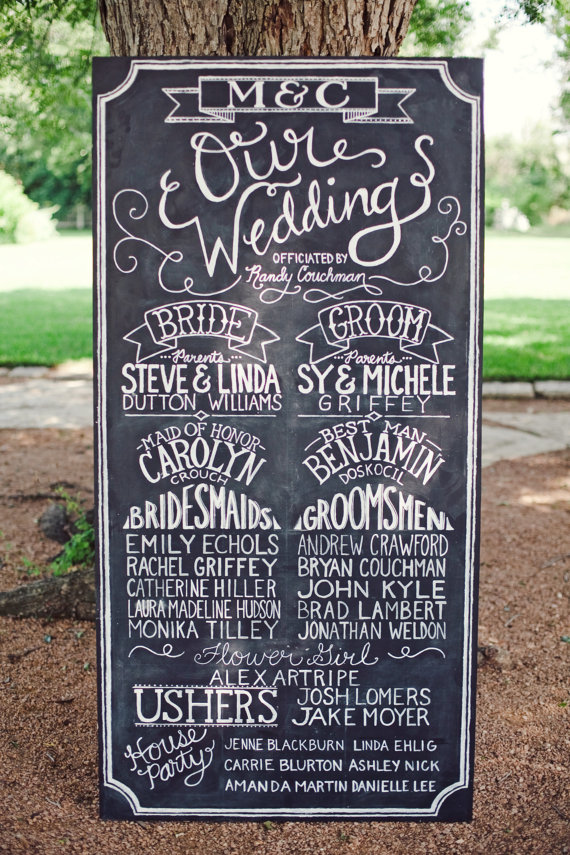 M&C
Our
Wedding
OFFICIATED BY
Randy Couchman
BRIDE
Parents
STEVE & LINDA
DUTTON WILLIAMS
GROOM
Parents
SY & MICHELE
GRIFFEY
MAID OF HONOR
CAROLYN
CROUCH
BEST MAN
BENJAMIN
DOSKOCIL
BRIDESMAIDS
EMILY ECHOLS
RACHEL GRIFFEY
CATHERINE HILLER
LAURA MADELINE HUDSON
MONIKA TILLEY
GROOMSMEN
ANDREW CRAWFORD
BRYAN COUCHMAN
JOHN KYLE
BRAD LAMBERT
JONATHAN WELDON
Flower Girl
ALEX ARTRIPE
USHERS
JOSH LOMERS
JAKE MOYER
House
Party
JENNE BLACKBURN LINDA EHLIG
CARRIE BLURTON ASHLEY NICK
AMANDA MARTIN DANIELLE LEE